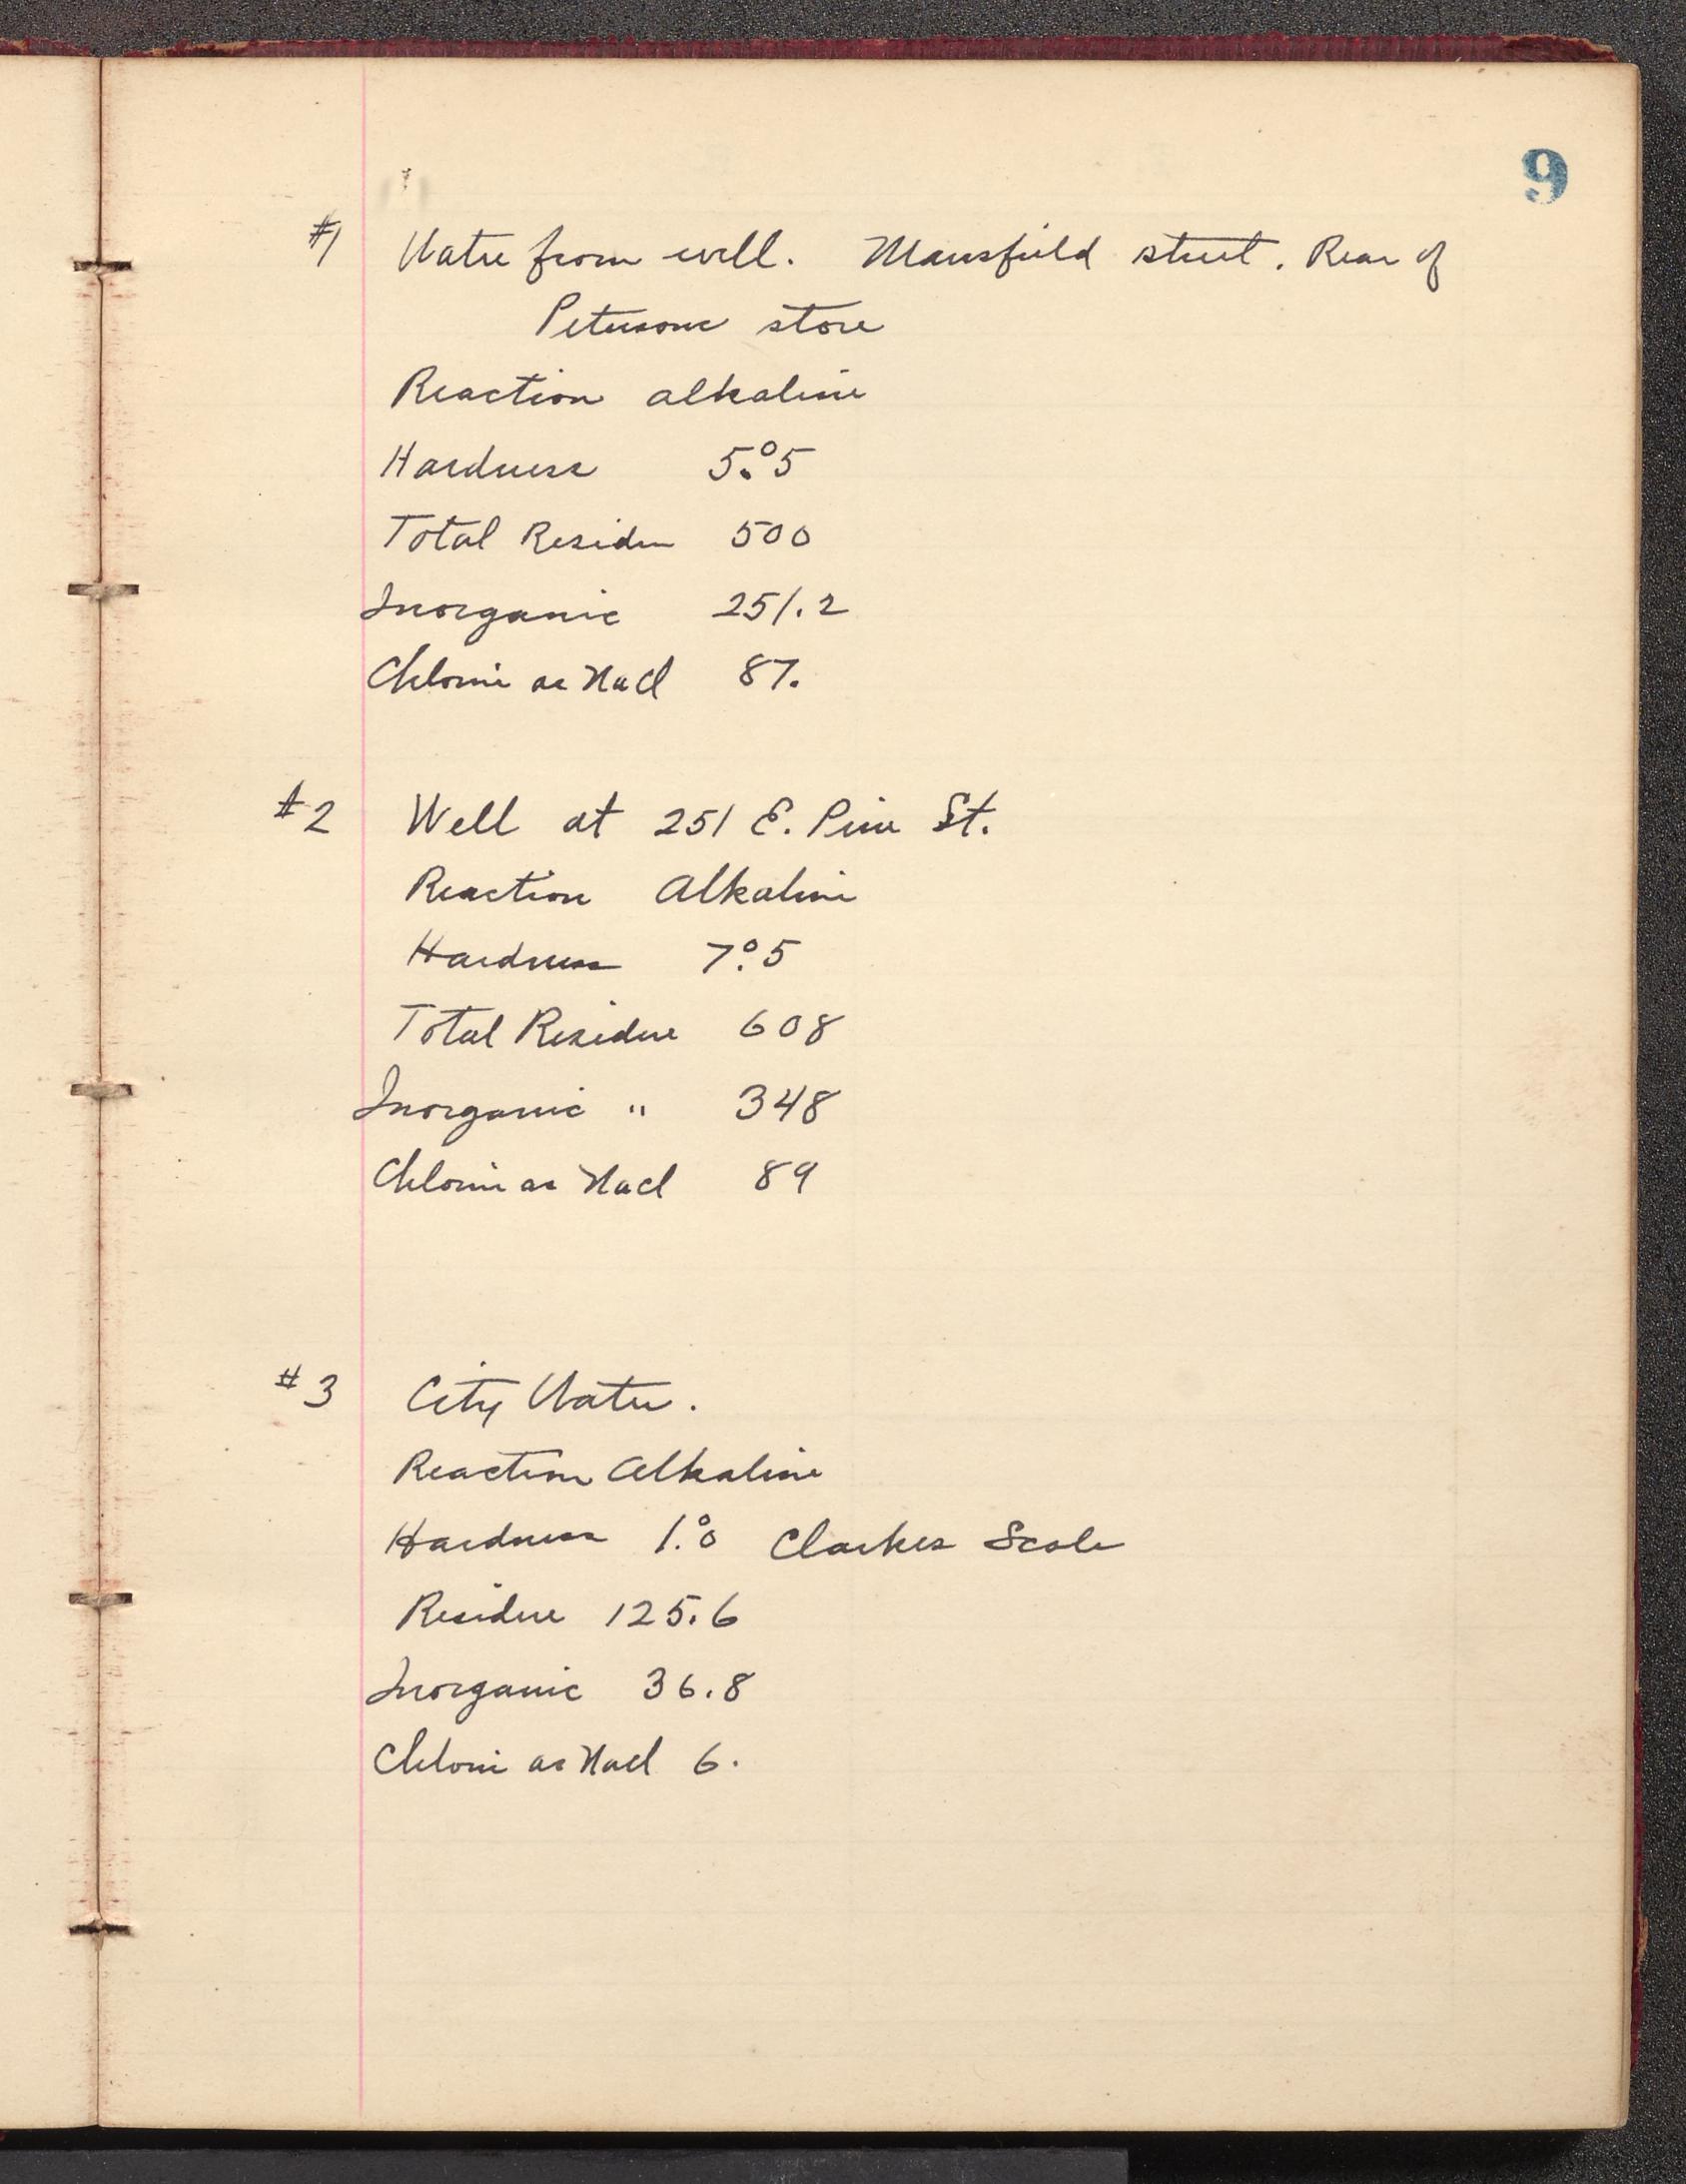 9
#1 Water from well. Mansfield street. Rear of
Petersons store
Reaction alkaline
Hardness 5.°5
Total Residue 500
Inorganic 251.2
Chlorine as NaCl 87.
#2 Well at 251 E. Pine St.
Reaction Alkaline
Hardness 7.°5
Total Residue 608
Inorganic " 348
Chlorine as NaCl 89
#3 City Water.
Reaction Alkaline
Hardness 1.°0 Clarkes Scale
Residue 125.6
Inorganic 36.8
Chlorine as NaCl 6.